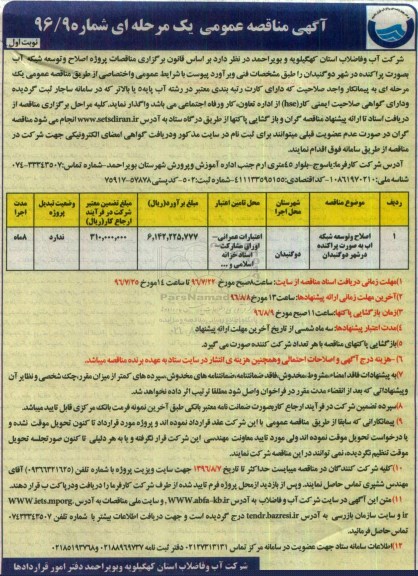 آگهی مناقصه عمومی یک مرحله ای شماره ۹۶/۹
نوبت اول
شرکت آب وفاضلاب استان کهگیلویه و بویراحمد در نظر دارد بر اساس قانون برگزاری مناقصات پروژه اصلاح وتوسعه شبکه آب
بصورت پراکنده در شهر دوگنبدان را طبق مشخصات فنی وبرآورد پیوست با شرایط عمومی واختصاصی از طریق مناقصه عمومی یک
مرحله ای به پیمانکار واجد صلاحیت که دارای کارت رتبه بندی معتبر در رشته آب پایه۵ یا بالاتر که در سامانه ساجار ثبت گردیده
ودارای گواهی صلاحیت ایمنی کار(hse) از اداره تعاون، کار ورفاه اجتماعی می باشد، واگذار نماید. کلیه مراحل برگزاری مناقصه از
دریافت اسناد تا ارائه پیشنهاد مناقصه گران و بازگشایی پاکتها از طریق درگاه ستاد به آدرس www.setsdiran.ir انجام می شود مناقصه
گران در صورت عدم عضویت قبلی میتوانند برای ثبت نام در سایت مذکور ودریافت گواهی امضای الکترونیکی جهت شرکت در
مناقصه از طریق سامانه فوق اقدام نمایند.
آدرس شرکت کارفرما: یاسوج-بلوار ۴۵متری ارم جنب اداره آموزش وپرورش شهرستان بویراحمد-شماره تماس: ۳۳۳۴۳۵۰۷-۰۷۴
شناسه ملی: ۱۰۸۶۱۹۷۰۲۱۰-کداقتصادی: ۴۱۱۱۳۳۵۹۵۱۵۵-شماره ثبت: ۵۰۲-کدپستی: ۵۷۸۷۸-۷۵۹۱۷
ردیف موضوع مناقصه شهرستان محل اجرا محل تامین اعتبار مبلغ برآورد(ریال) مبلغ تضمین معتبر شرکت در فرآیند ارجاع کار(ریال) وضعیت تبدیل پروژه مدت اجرا
۱ اصلاح وتوسعه شبکه آب به صورت پراکنده در شهر دوگنبدان دوگنبدان اعتبارات عمرانی-اوراق مشارکت-اسناد خزانه اسلامی و ... ۶,۱۴۲,۲۲۵,۷۷۷ ۳۱۰,۰۰۰,۰۰۰ ندارد ۸ماه
۱)مهلت زمانی دریافت اسناد مناقصه از سایت: ساعت۸صبح مورخ ۹۶/۷/۲۲ تا ساعت ۱۴ مورخ ۹۶/۷/۲۵
۲)آخرین مهلت زمانی ارائه پیشنهادها: ساعت۱۳ مورخ ۹۶/۸/۸
۳)زمان بازگشایی پاکتها: ساعت۱۱صبح مورخ ۹۶/۸/۹
۴)مدت اعتبار پیشنهادها: سه ماه شمسی از تاریخ آخرین مهلت ارائه پیشنهاد
۵)بازگشایی پاکتهای مناقصه با هر تعداد شرکت کننده صورت می گیرد.
۶-هزینه درج آگهی و اصلاحات احتمالی وهمچنین هزینه ی انتشار در سایت ستاد به عهده برنده مناقصه میباشد.
۷)به پیشنهادات فاقد امضا، مشروط، مخدوش، فاقد ضمانتنامه، ضمانتنامه های مخدوش، سپرده های کمتر از میزان مقرر، چک شخصی و نظایر آن
وپیشنهاداتی که بعد از انقضاء مدت مقرر در فراخوان واصل شود مطلقا ترتیب اثر داده نخواهد شد.
۸)سپرده تضمین شرکت در فرآیند ارجاع کار بصورت ضمانت نامه معتبر بانکی طبق آخرین نمونه فرمت بانک مرکزی قابل تایید میباشد.
۹) پیمانکارانی که سابقا از طریق مناقصه عمومی با این شرکت عقد قرارداد نموده اند و پروژه مورد قرارداد تا کنون تحویل موقت نشده و
یا درخواست تحویل موقت نموده اند ولی مورد تایید معاونت مهندسی این شرکت قرار نگرفته و یا به هر دلیلی تا کنون صورتجلسه تحویل
موقت تنظیم نگردیده، نمی توانند در این مناقصه شرکت نمایند.
۱۰) کلیه شرکت کنندگان در مناقصه میبایست حداکثر تا تاریخ ۱۳۹۶/۸/۷ جهت سایت ویزیت پروژه با شماره تلفن (۰۹۳۶۶۳۲۱۶۲۵) آقای
مهندس شنبری تماس حاصل نمایند. وپس از بازدید از محل پروژه فرم تایید شده از طرف شرکت کارفرما را دریافت ودر پاکت ب قرار دهند.
۱۱) متن این آگهی در سایت شرکت آب و فاضلاب به آدرس WWW.abfa-kb.ir، و سایت ملی مناقصات به آدرس WWW.iets.mporg.
ir و سایت سازمان بازرسی به آدرس tendr.bazresi.ir درج گردیده است و جهت دریافت اطلاعات بیشتر با شماره تلفن ۰۷۴۳۳۳۴۳۵۰۷
تماس حاصل فرمائید.
۱۲) اطلاعات سامانه ستاد جهت عضویت در سامانه مرکز تماس ۰۲۱۲۷۳۱۳۱۳۱ دفتر ثبت نامه ۰۲۱۸۸۹۶۹۷۳۷ و ۰۲۱۸۵۱۹۳۷۶۸
شرکت آب وفاضلاب استان کهگیلویه وبویراحمد دفتر امور قراردادها